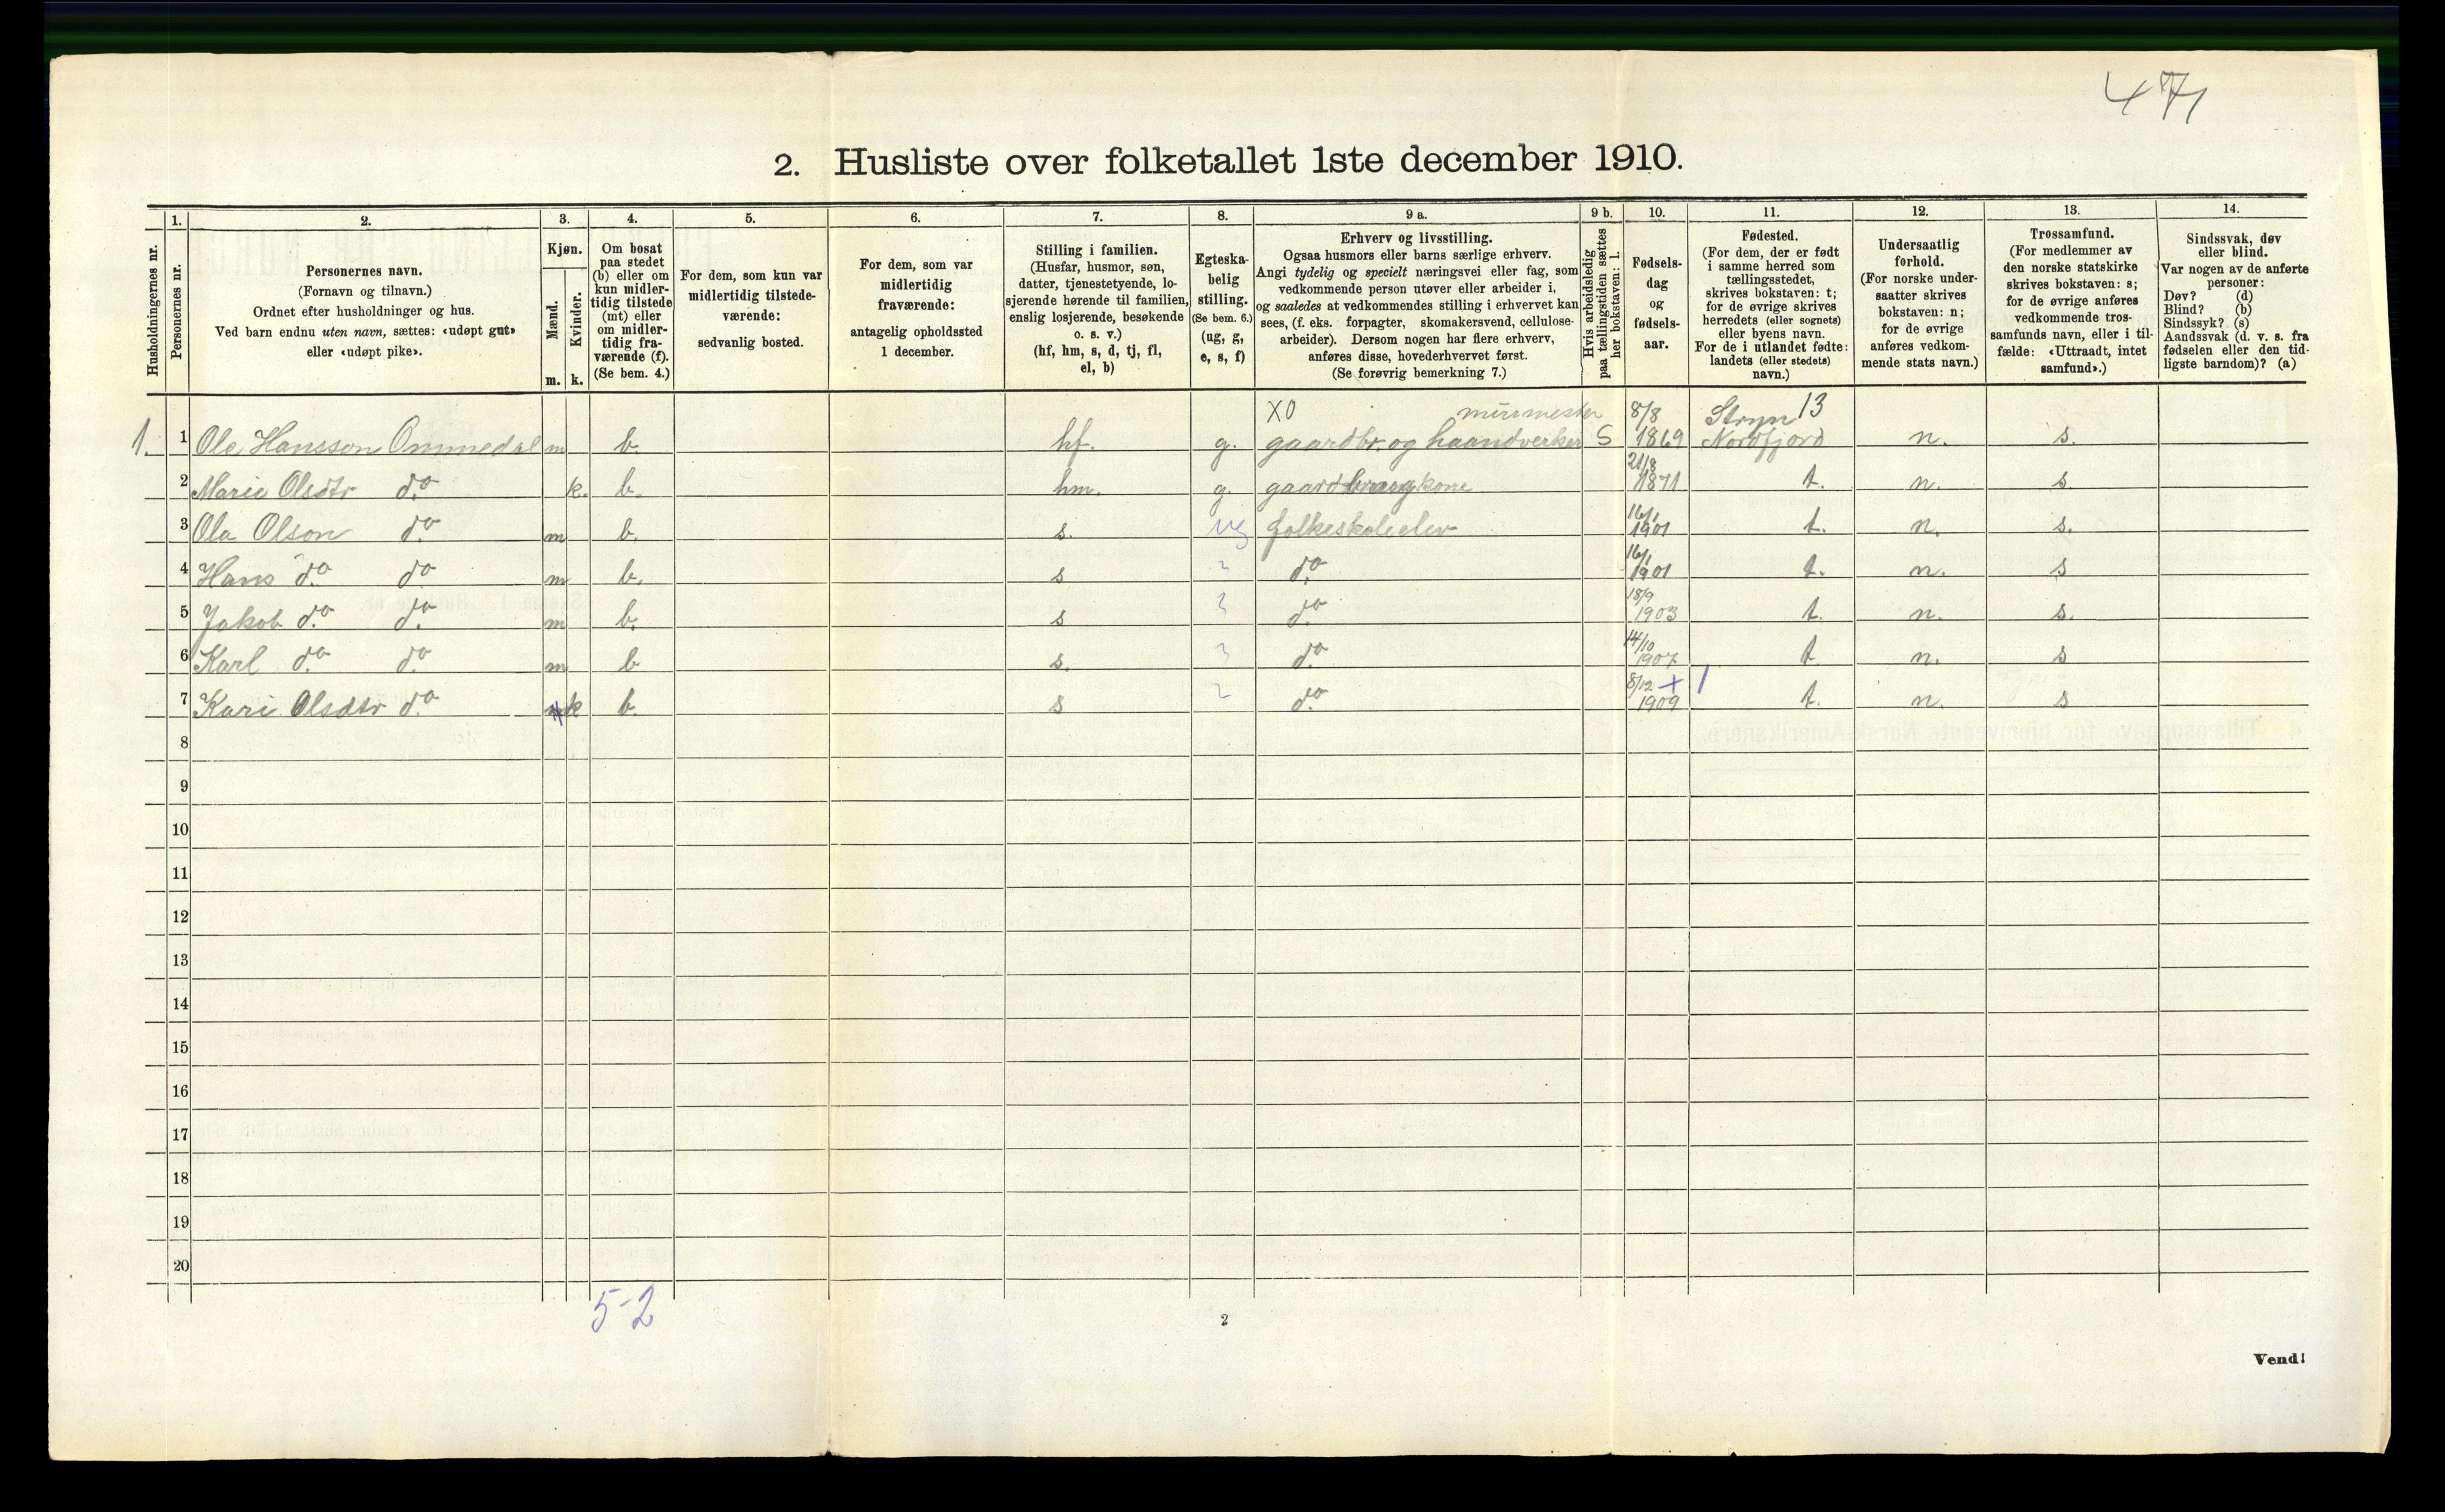 47
2. Husliste over folketallet 1ste december 1910.
Husholdningernes nr.
1. Personernes nr.
2. Personernes navn.
(Fornavn og tilnavn.)
Ordnet efter husholdninger og hus.
Ved barn endnu uten navn, sættes: «udøpt gut»
eller «udøpt pike».
3. Kjøn.
Mænd. m.
Kvinder. k.
4. Om bosat
paa stedet
(b) eller om
kun midler-
tidig tilstede
(mt) eller
om midler-
tidig fra-
værende (f).
(Se bem. 4.)
5. For dem, som kun var
midlertidig tilstede-
værende:
sedvanlig bosted.
6. For dem, som var
midlertidig
fraværende:
antagelig opholdssted
1 december.
7. Stilling i familien.
(Husfar, husmor, søn,
datter, tjenestetyende, lo-
sjerende hørende til familien,
enslig losjerende, besøkende
o. s. v.)
(hf, hm, s, d, tj, fl,
el, b)
8. Egteska-
belig
stilling.
(Se bem. 6.)
(ug, g,
e, s, f)
9 a. Erhverv og livsstilling.
Ogsaa husmors eller barns særlige erhverv.
Angi tydelig og specielt næringsvei eller fag, som
vedkommende person utøver eller arbeider i,
og saaledes at vedkommendes stilling i erhvervet kan
sees, (f. eks. forpagter, skomakersvend, cellulose-
arbeider). Dersom nogen har flere erhverv,
anføres disse, hovederhvervet først.
(Se forøvrig bemerkning 7.)
9 b. Hvis arbeidsledig
paa tællingstiden sættes
her bokstaven: l.
10. Fødsels-
dag
og
fødsels-
aar.
11. Fødested.
(For dem, der er født
i samme herred som
tællingsstedet,
skrives bokstaven: t;
for de øvrige skrives
herredets (eller sognets)
eller byens navn.
For de i utlandet fødte:
landets (eller stedets)
navn.)
12. Undersaatlig
forhold.
(For norske under-
saatter skrives
bokstaven: n;
for de øvrige
anføres vedkom-
mende stats navn.)
13. Trossamfund.
(For medlemmer av
den norske statskirke
skrives bokstaven: s;
for de øvrige anføres
vedkommende tros-
samfunds navn, eller i til-
fælde: «Uttraadt, intet
samfund».)
14. Sindssvak, døv
eller blind.
Var nogen av de anførte
personer:
Døv? (d)
Blind? (b)
Sindssyk? (s)
Aandssvak (d. v. s. fra
fødselen eller den tid-
ligste barndom)? (a)
XO murmester 8/8 Stryn 13
1. 1 Ole Hansson Ommedal m b. hf. g. gaardbr. og haandverker S 1869 Nordfjord n. s.
2 Marie Olsdtr do k. b. hm. g. gaardbrugkone 21/8 1871 t. n. s.
3 Ola Olson do m b. s. ug folkeskoleelev 16/1 1901 t. n. s.
4 Hans do do m b. s do 16/1 1901 t. n. s
5 Jakob do do m b. s do 18/9 1903 t. n. s.
6 Karl do do m b s. do 14/10 1907 t n. s
7 Kari Olsdtr do k b. s do 8/12 1909 + 1 t. n. s
8
9
10
11
12
13
14
15
16
17
18
19
20
5-2
2
Vend!